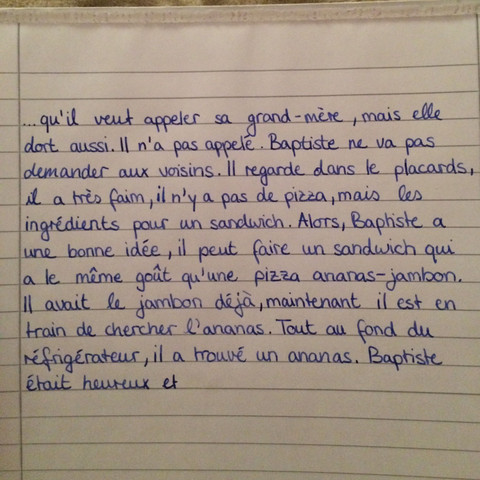 ...qu'il veut appeler sa grand-mère, mais elle
dort aussi. Il n'a pas appelé. Baptiste ne va pas
demander aux voisins. Il regarde dans le placards,
il a très faim, il n'y a pas de pizza, mais les
ingrédients pour un sandwich. Alors, Baptiste a
une bonne idée, il peut faire un sandwich qui
a le même goût qu'une pizza ananas-jambon.
Il avait le jambon déjà, maintenant il est en
train de chercher l'ananas. Tout au fond du
réfrigérateur, il a trouvé un ananas. Baptiste
était heureux et